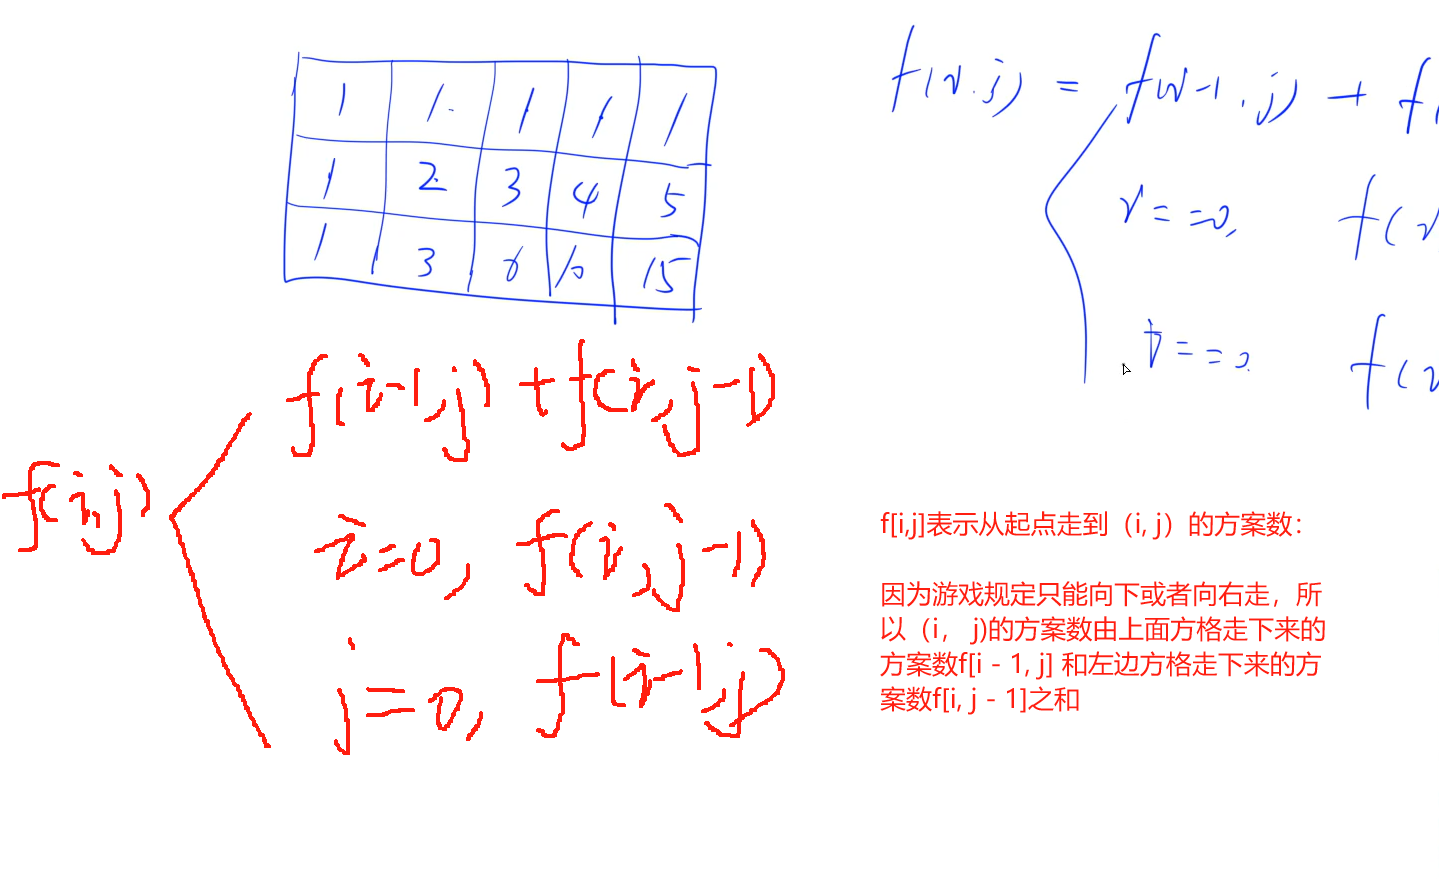 1 1 1 1 1
1 2 3 4 5
1 3 6 10 15
f(i,j) = f(i-1,j) + f(
i==0, f(i
j==0. f(i
f(i,j)
f(i-1,j)+f(i,j-1)
i=0, f(i,j-1)
j=0, f(i-1,j)
f[i,j]表示从起点走到（i, j）的方案数：
因为游戏规定只能向下或者向右走，所
以（i， j)的方案数由上面方格走下来的
方案数f[i - 1, j] 和左边方格走下来的方
案数f[i, j - 1]之和